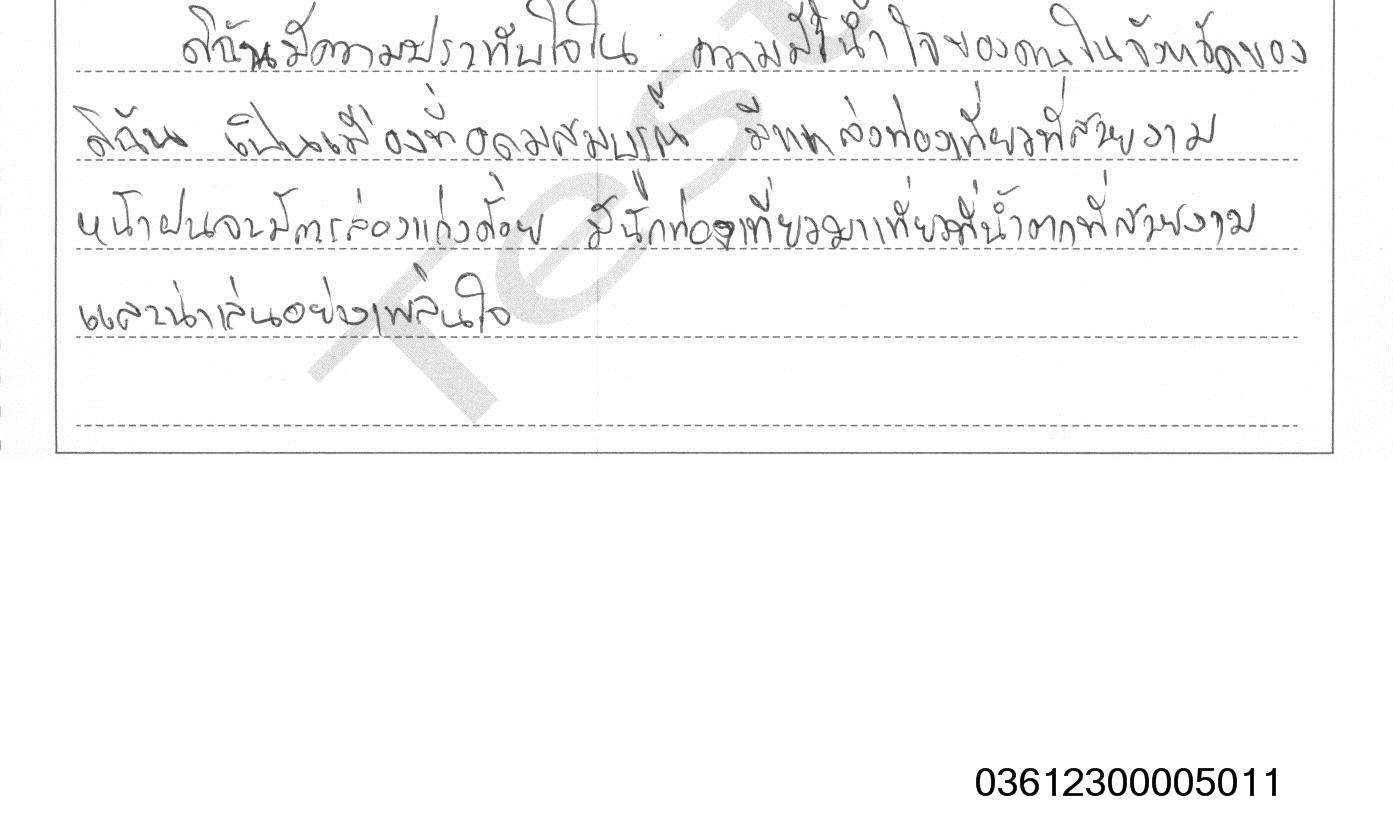 ดิฉันมีความประทับใจใน ความมีน้ำใจของคนในจังหวัดของ
ดิฉัน เป็นเมืองที่อุดมสมบูรณ์ มีแหล่งท่องเที่ยวที่สวยงาม
หน้าฝนจะมีการล่องแก่งด้วย มีนักท่องเที่ยวมาเที่ยวที่น้ำตกที่สวยงาม
และน่าเล่นอย่างเพลินใจ
Test
03612300005011